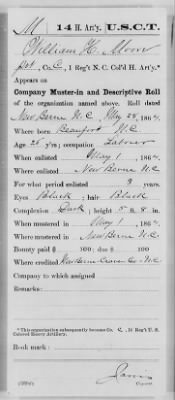 M | 14 H. Art'y. | U.S.C.T.
William H. Moore
Pvt., Co. C, 1 Reg't N. C. Col'd H. Art'y.*
Appears on
Company Muster-in and Descriptive Roll
of the organization named above. Roll dated
New Berne N.C. May 28, 1864.
Where born Beaufort N.C.
Age 25 y'rs; occupation Laborer
When enlisted May 1, 1864.
Where enlisted New Berne N.C.
For what period enlisted 3 years.
Eyes Black; hair Black
Complexion Dark; height 5 ft. 8 in.
When mustered in May 1, 1864.
Where mustered in New Berne N.C.
Bounty paid $ 100; due $ 100
Where credited New Berne Craven Co. N.C.
Company to which assigned
Remarks:
*This organization subsequently became Co. C, 14 Reg't U. S.
Colored Heavy Artillery.
Book mark:
Copyist.